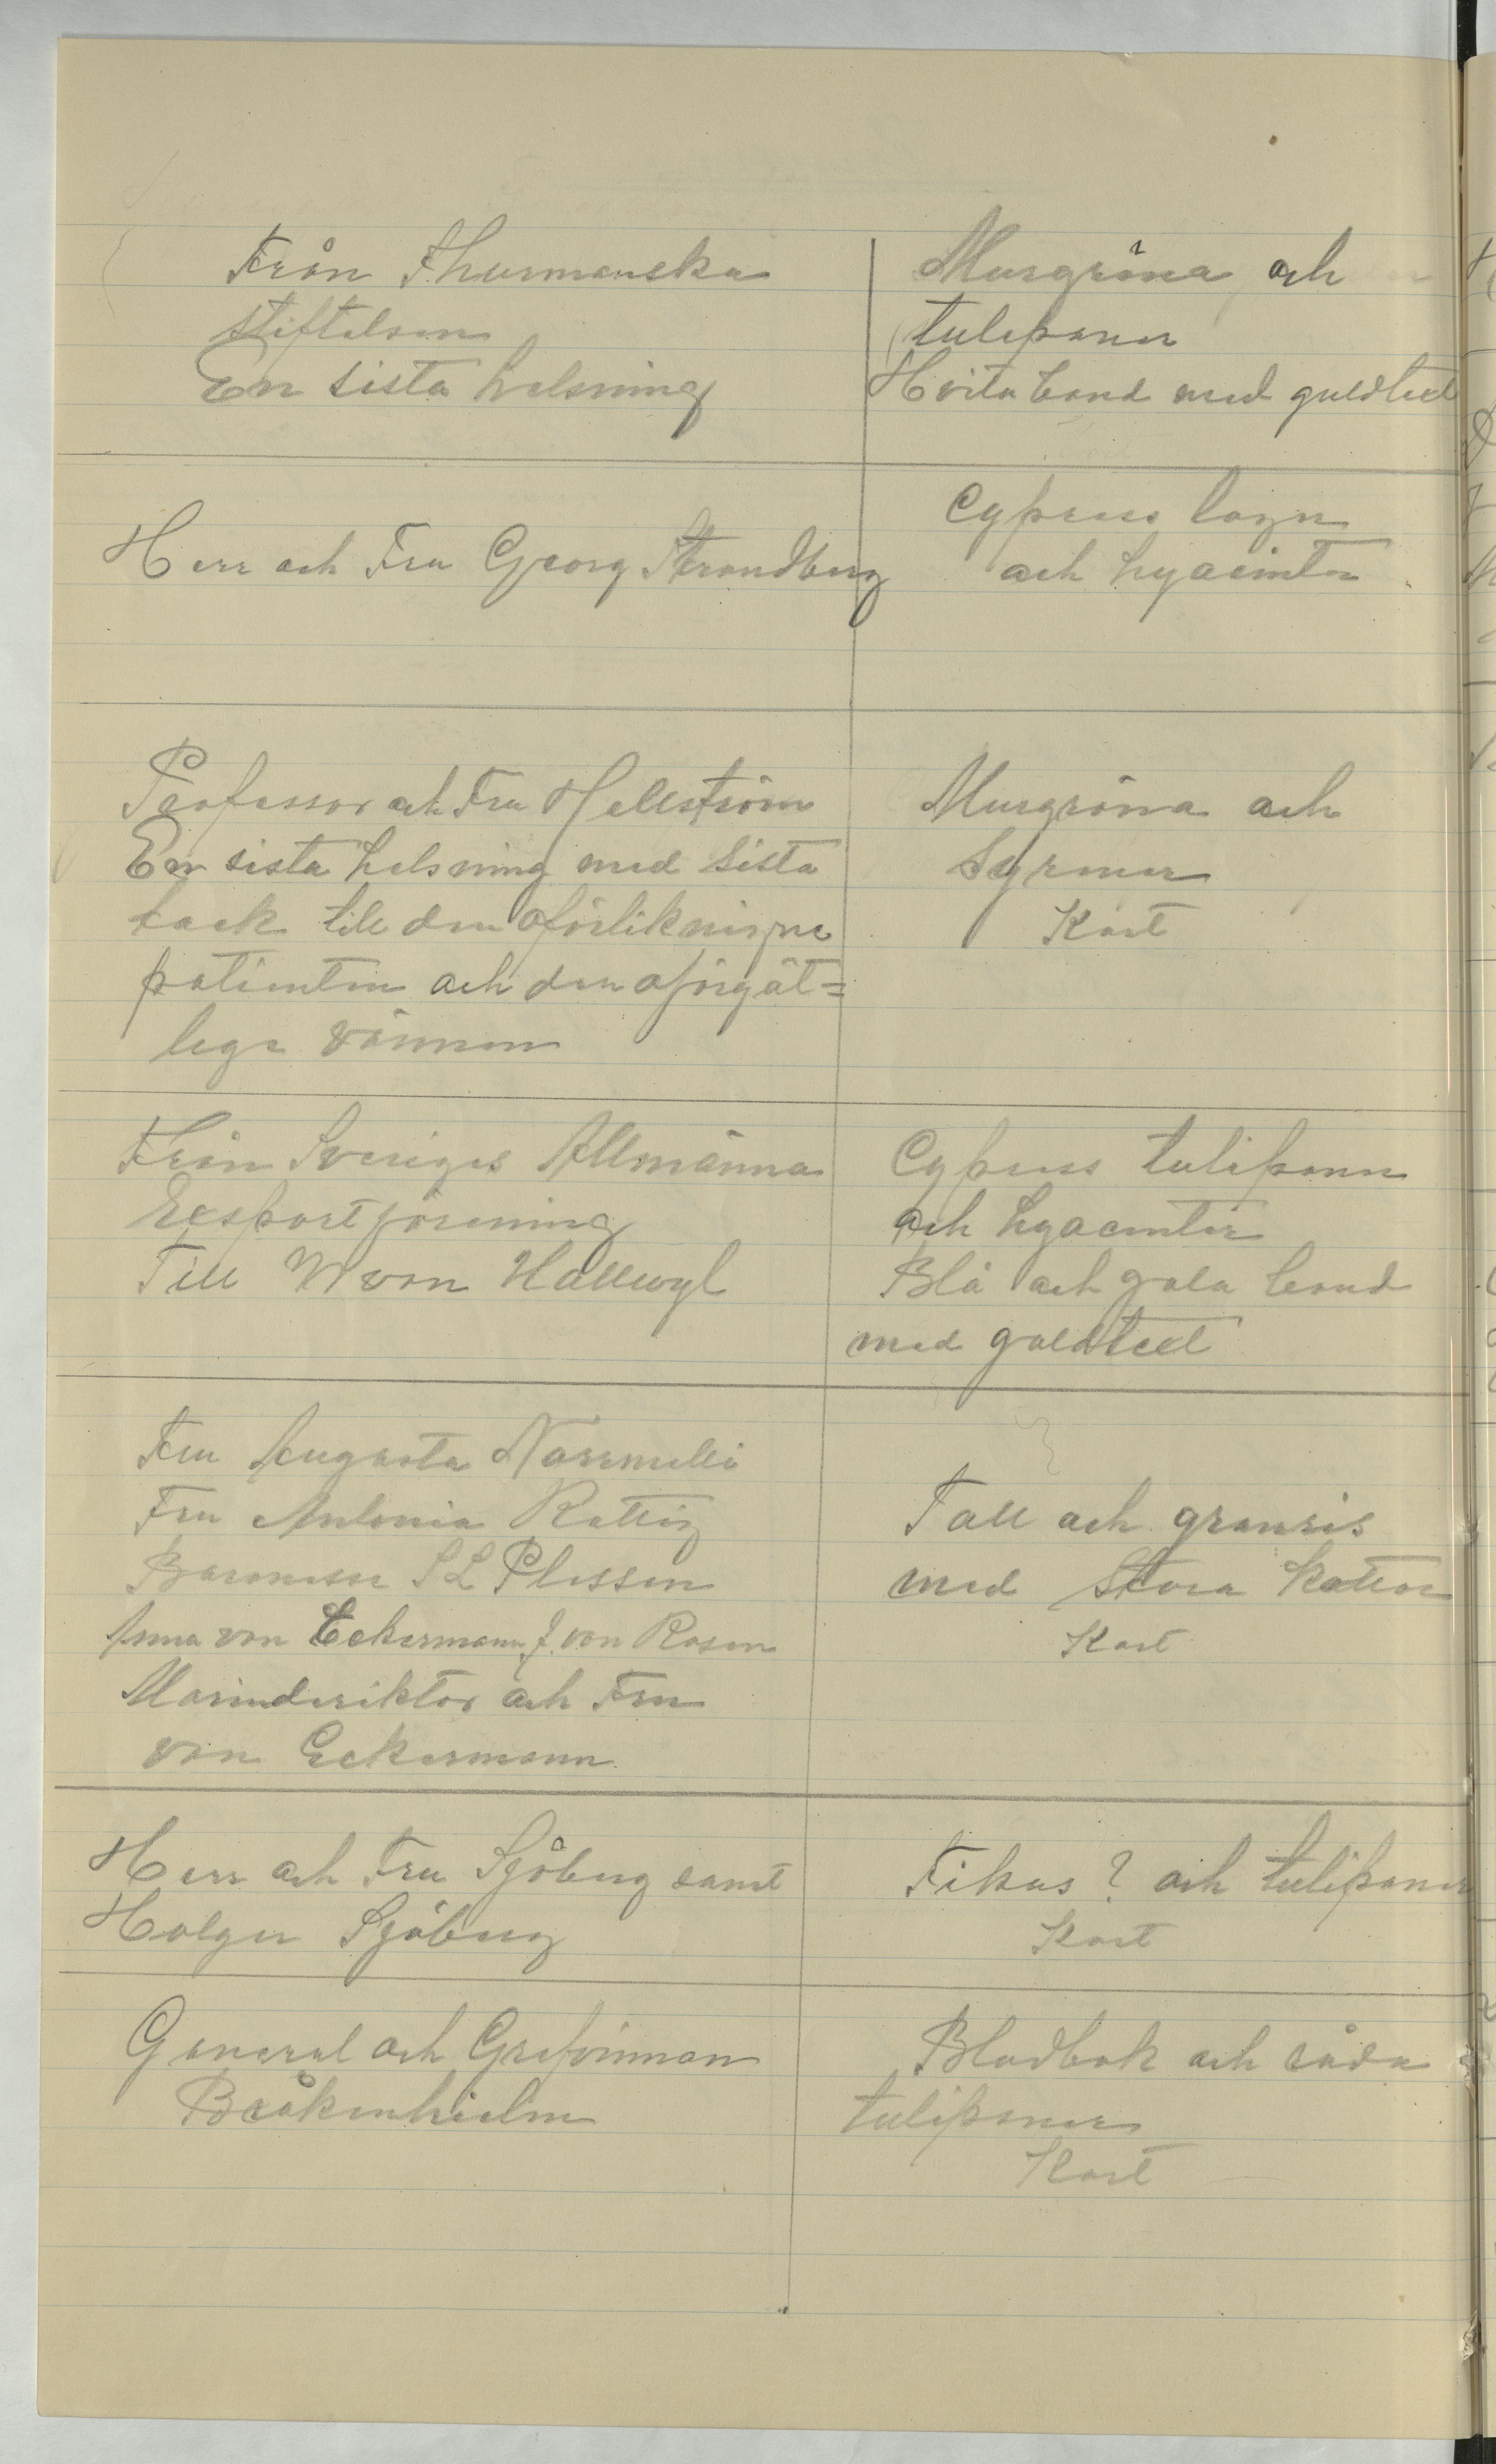 Från Thurmanska
stiftelsen
En sista helsning
Murgröna och
tulipaner
Hvita band med guldtext
Herr och Fru Georg Strandberg
Cypress lager
och hyacinter
Professor och Fru Hellström
En sista helsning med sista
tack till den oförliknige
patienten och den oförgät=
lige vännen
Murgröna och
Syrener
Kort
Från Sveriges Allmänna
Exportförening
Till W von Hallwyl
Cypress tulipaner
och hyacinter
Blå och gula band
med guldtext
Fru Augusta
Fru Antonia Rettig
Baronessa S L Plessen
Anna von Eckermann J. von Rosen
Marindirektör och Fru
von Eckermann
Tall och granris
med stora kottar
Kort
Herr och Fru Sjöberg samt
Holger Sjöberg
Fikus ? och tulipaner
Kort
General och Grefvinnan
Bråkenhielm
Blodbok och röda
tulipaner
Kort